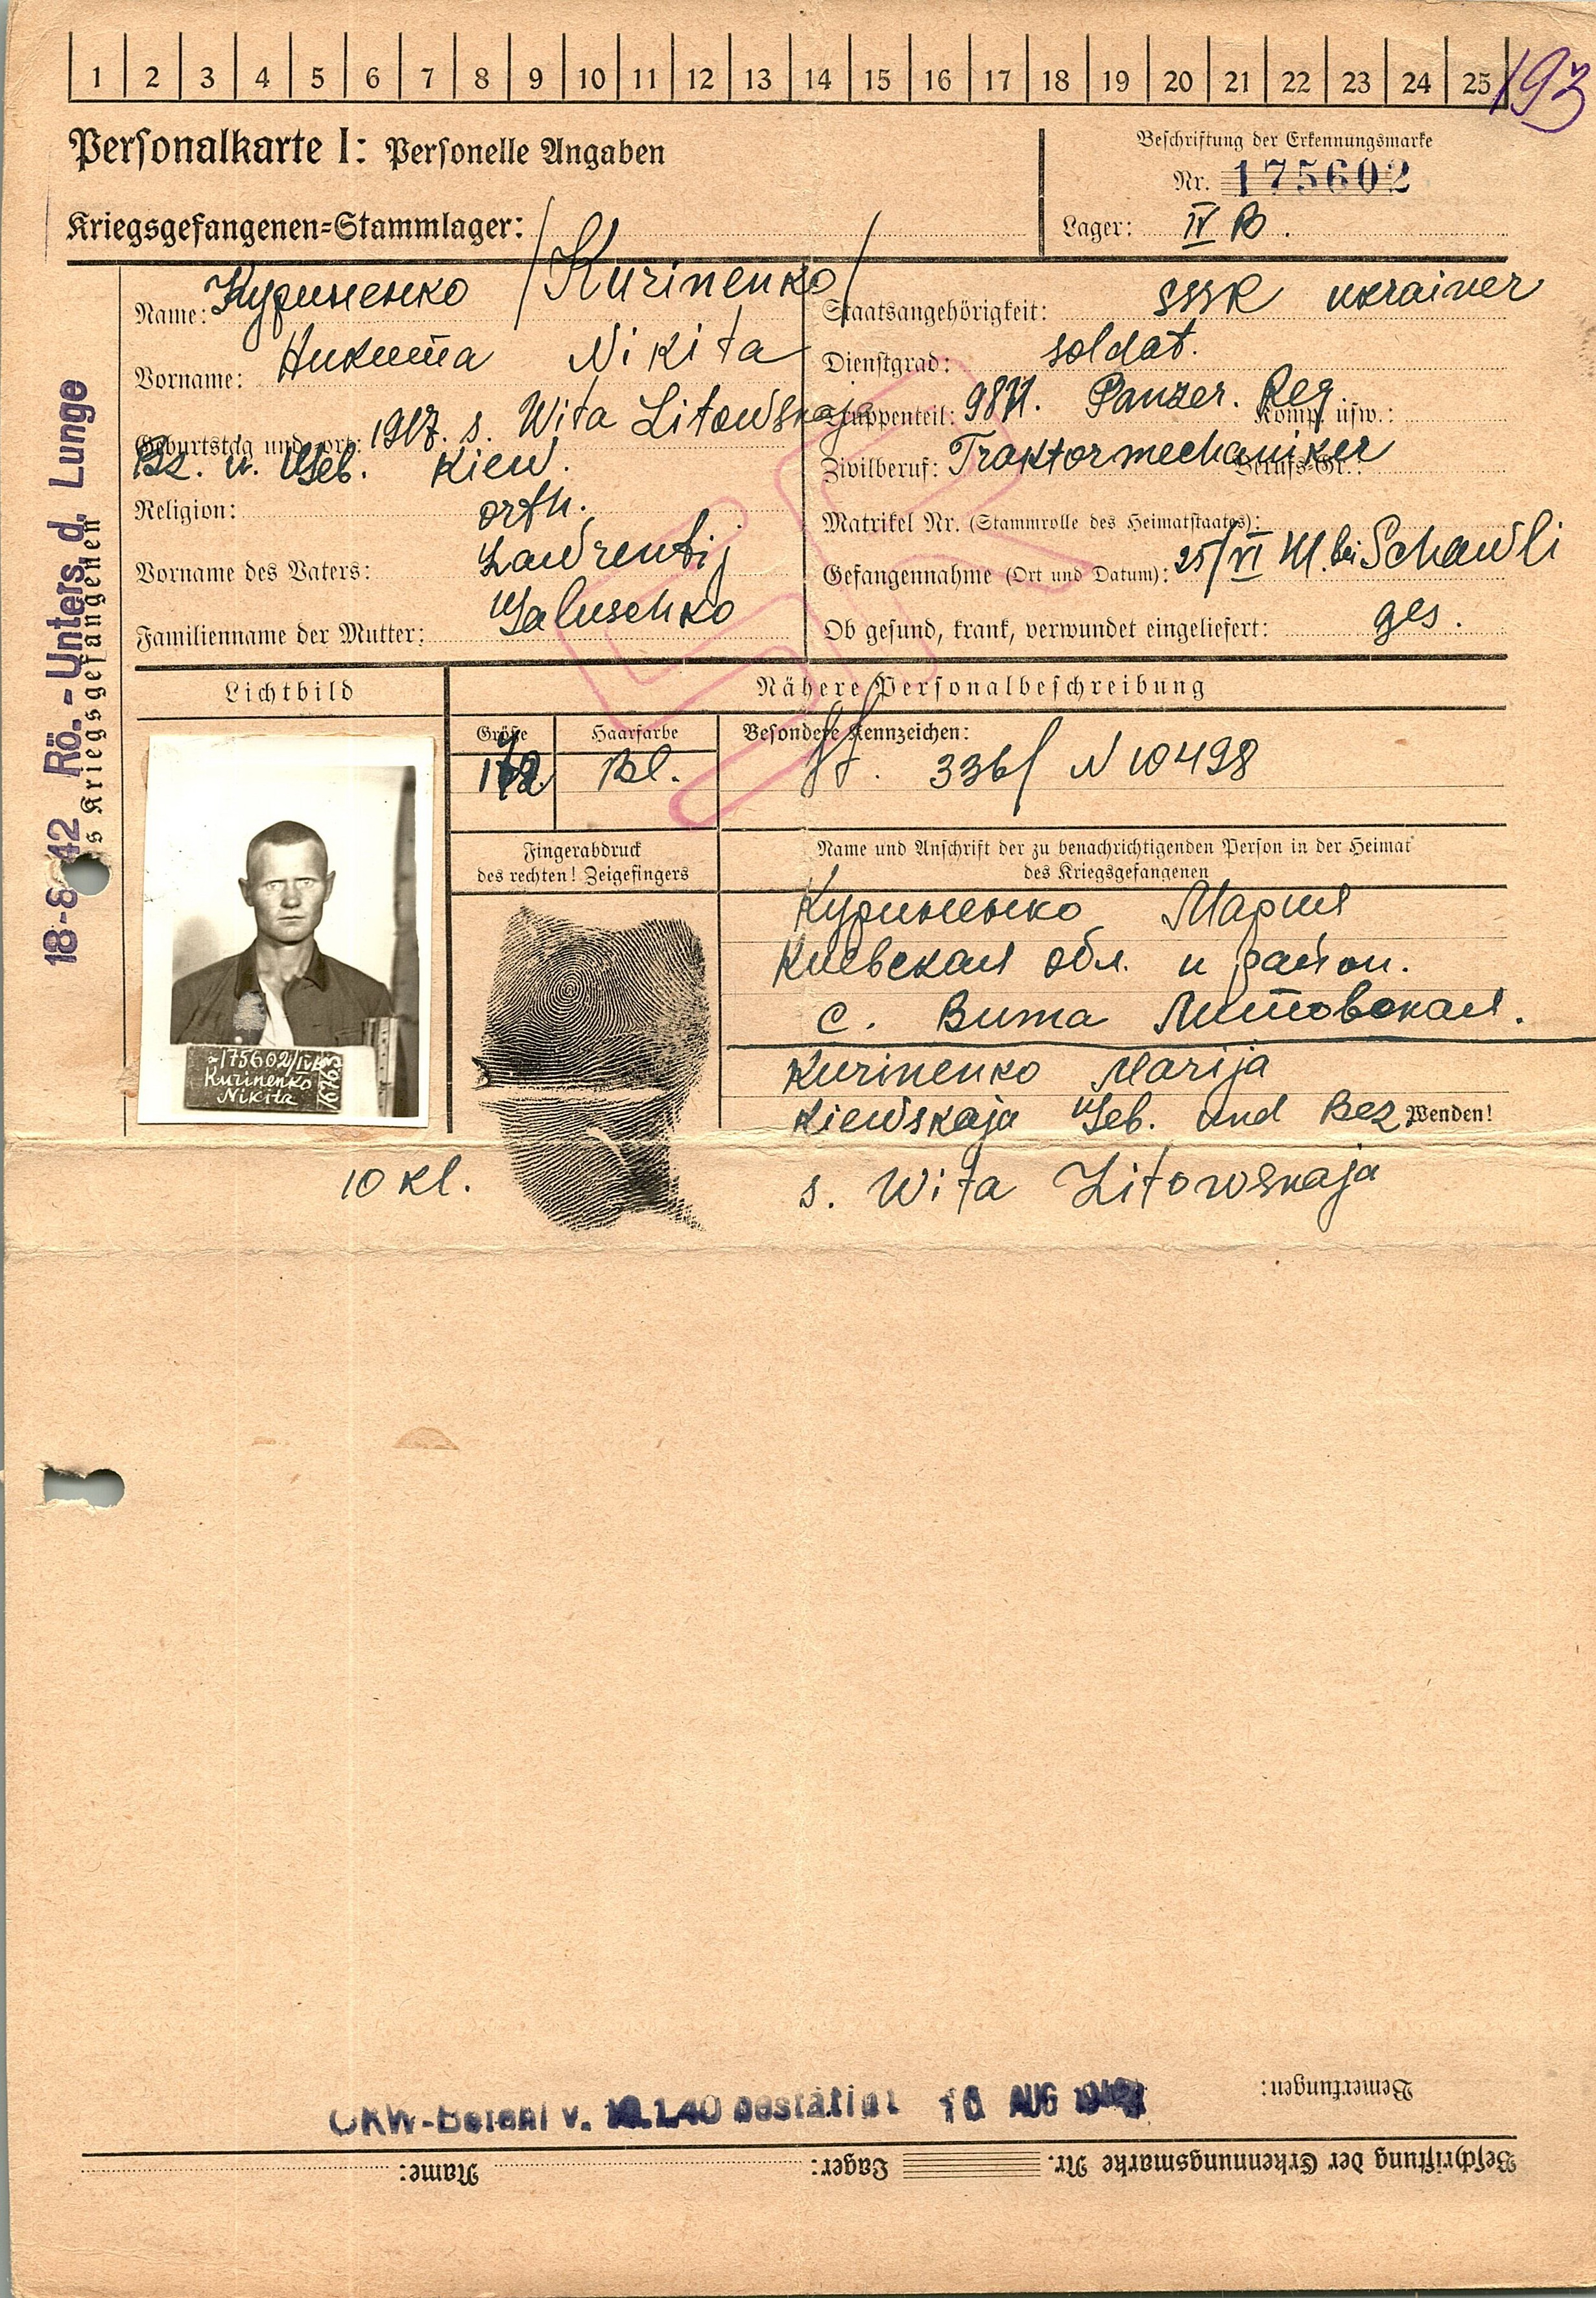 1 2 3 4 5 6 7 8 9 10 11 12 13 14 15 16 17 18 19 20 21 22 23 24 25
193
Personalkarte I: Personelle Angaben
Beschriftung der Erkennungsmarke
Nr. 175602
Kriegsgefangenen=Stammlager:
Lager: IV B.
Name: Куриненко /Kurinenko/
Vorname: Никита Nikita
Geburtstag und -ort: 1917. s. Wita Litowskaja
Bz. u. Geb. Kiew.
Religion: orth.
Vorname des Vaters: Lawrentij
Familienname der Mutter: Galuschko
Staatsangehörigkeit: SSSR ukrainer
Dienstgrad: soldat.
Truppenteil: Panzer. Reg. Komp. usw.:
Zivilberuf: Traktormechaniker Berufs-Gr.:
Matrikel Nr. (Stammrolle des Heimatstaates):
Gefangennahme (Ort und Datum): 25/VI 41. bei Schawli
Ob gesund, krank, verwundet eingeliefert: ges.
18-8-42 Rö.-Unters. d. Lunge
s Kriegsgefangenen
Lichtbild
Nähere Personalbeschreibung
Größe
Haarfarbe
Bl.
Besondere Kennzeichen:
336/ N 10498
175602/IVB
Kurinenko
Nikita
Fingerabdruck
des rechten! Zeigefingers
Name und Anschrift der zu benachrichtigenden Person in der Heimat
des Kriegsgefangenen
Куриненко Мария
Киевская обл. и район.
с. Вита Литовская.
Kurinenko Marija
Kiewskaja Geb. und Bez
Wenden!
s. Wita Litowskaja
10 kl.
Bemerkungen:
OKW-Befehl v. bestätigt 16 AUG
Beschriftung der Erkennungsmarke Nr. Lager: Name: